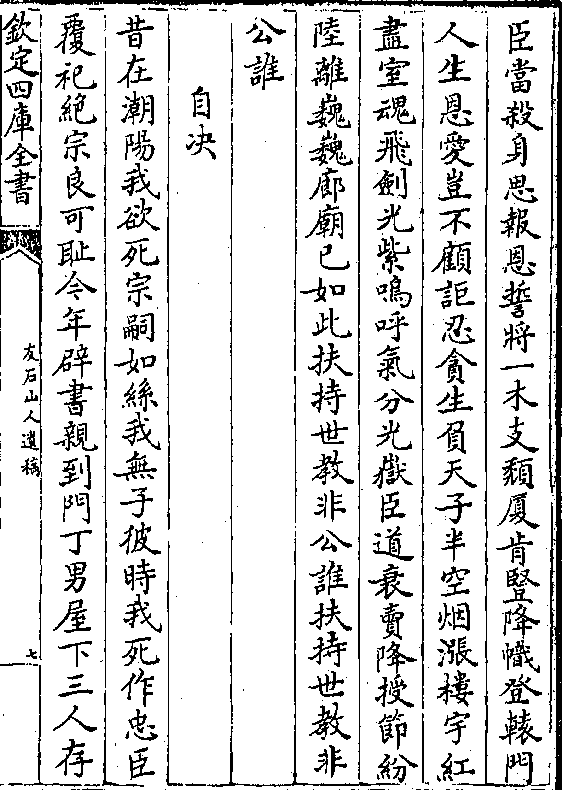 臣當殺身思報恩誓將一木支頹厦肯豎降幟登轅門
人生恩愛豈不顧詎忍貪生負天子半空烟漲樓宇紅
盡室魂飛劍光紫嗚呼氣分光嶽臣道衰賣降授節紛
陸離巍巍廊廟已如此扶持世教非公誰扶持世教非
公誰
自决
昔在潮陽我欲死宗嗣如絲我無子彼時我死作忠臣
覆祀絶宗良可耻今年辟書親到門丁男屋下三人存
欽定四庫全書
友石山人遺稿
七